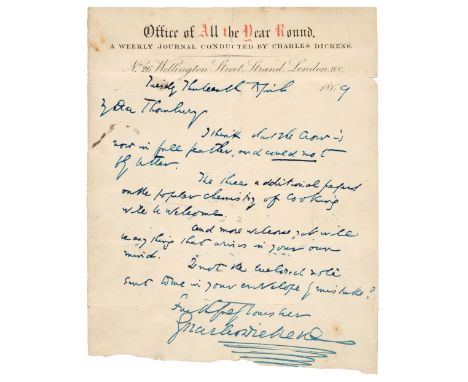 Office of All the Year Round.
A WEEKLY JOURNAL CONDUCTED BY CHARLES DICKENS.
No. 26 Wellington Street, Strand, London, W.C.
Tuesday Thirteenth April 1869
My dear Thornbury
I think that the Crow is
now in full feather, and could not
fly better.
The three additional papers
on the popular chemistry of Cooking
will be welcome.
And more welcome, still will
be anything that arises in your own
mind.
Is not the enclosed note
sent to me in your envelope by mistake?
Faithfully yours ever
Charles Dickens